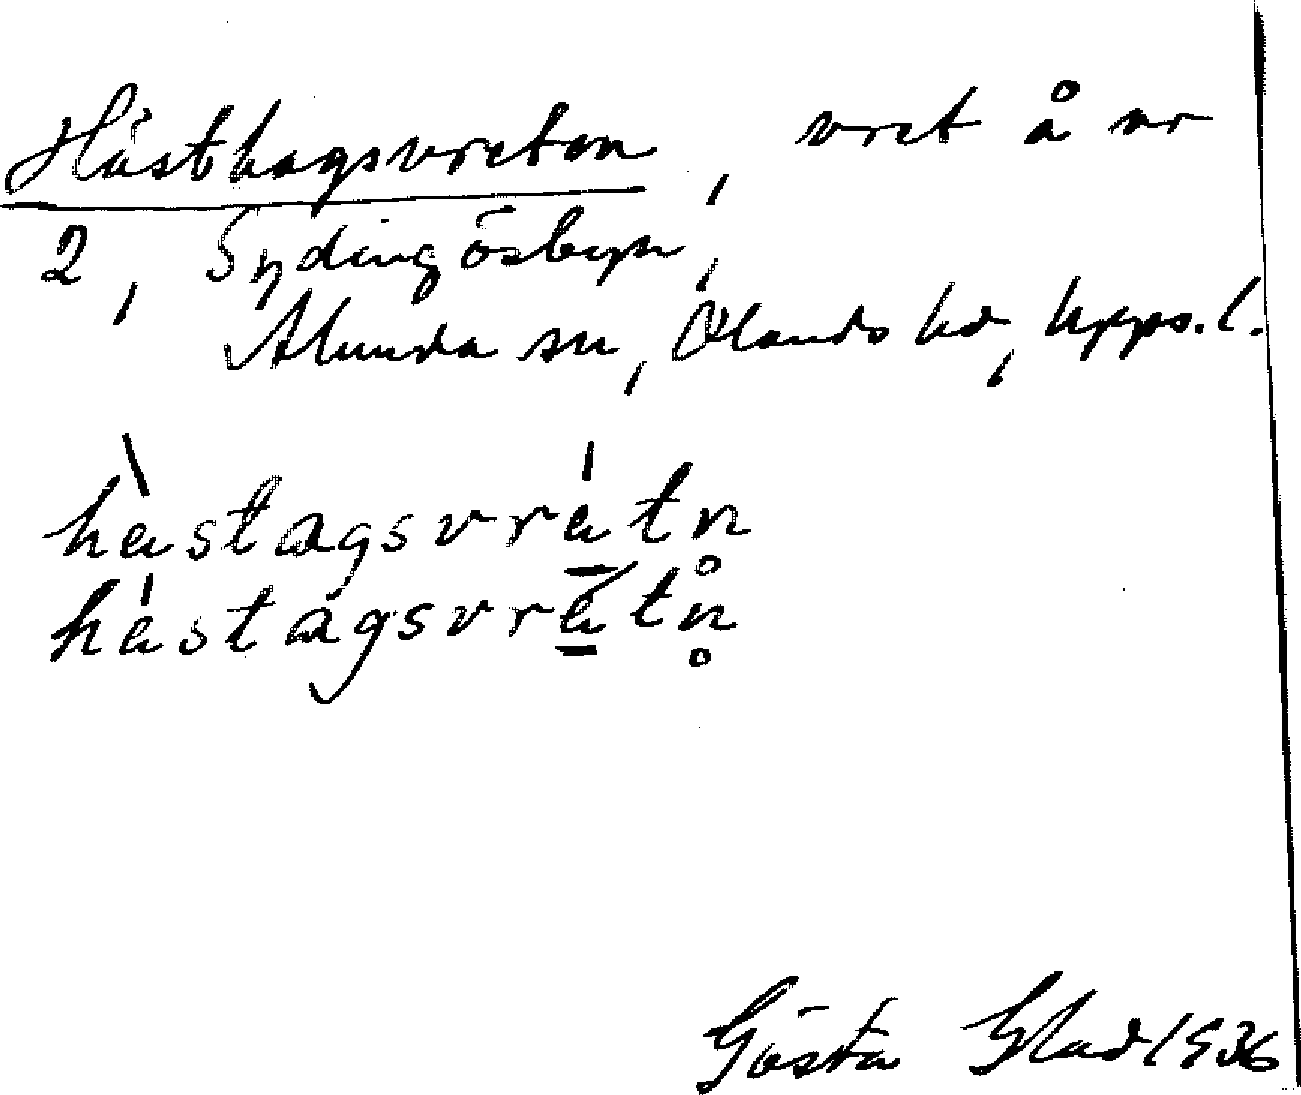 Hästhagsvreten, vret å nr
2, Sydingösbyn,
Alunda sn, Ölands hd, Upps. l.
hästagsvrätn̥
hästagsvrätn̥
Gösta Glad 1936